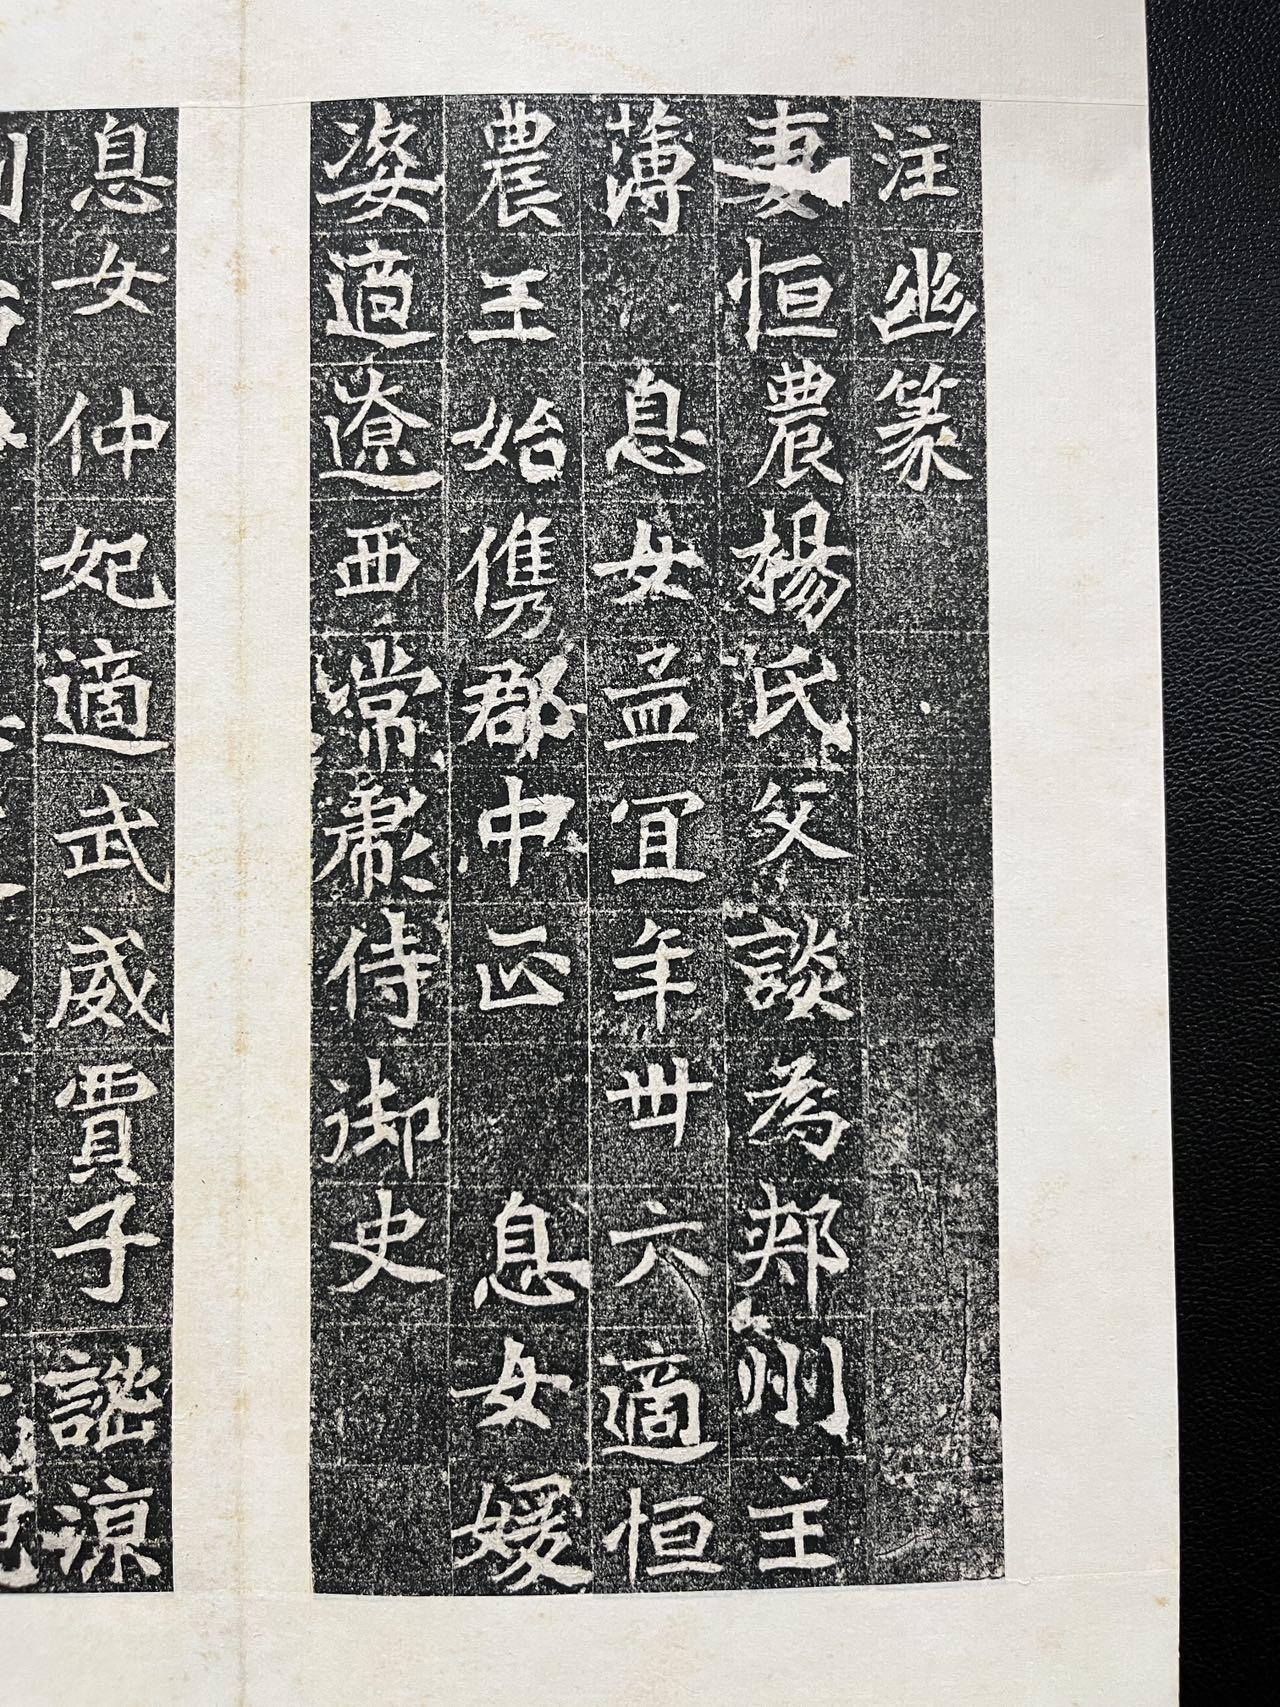 注幽篆
妻恒農楊氏父談為郏州主
薄 息女孟宜年卅六適恒
農王始儁郡中正 息女媛
姿適遼西常彪侍御史
息女仲妃適武威賈子謐涼